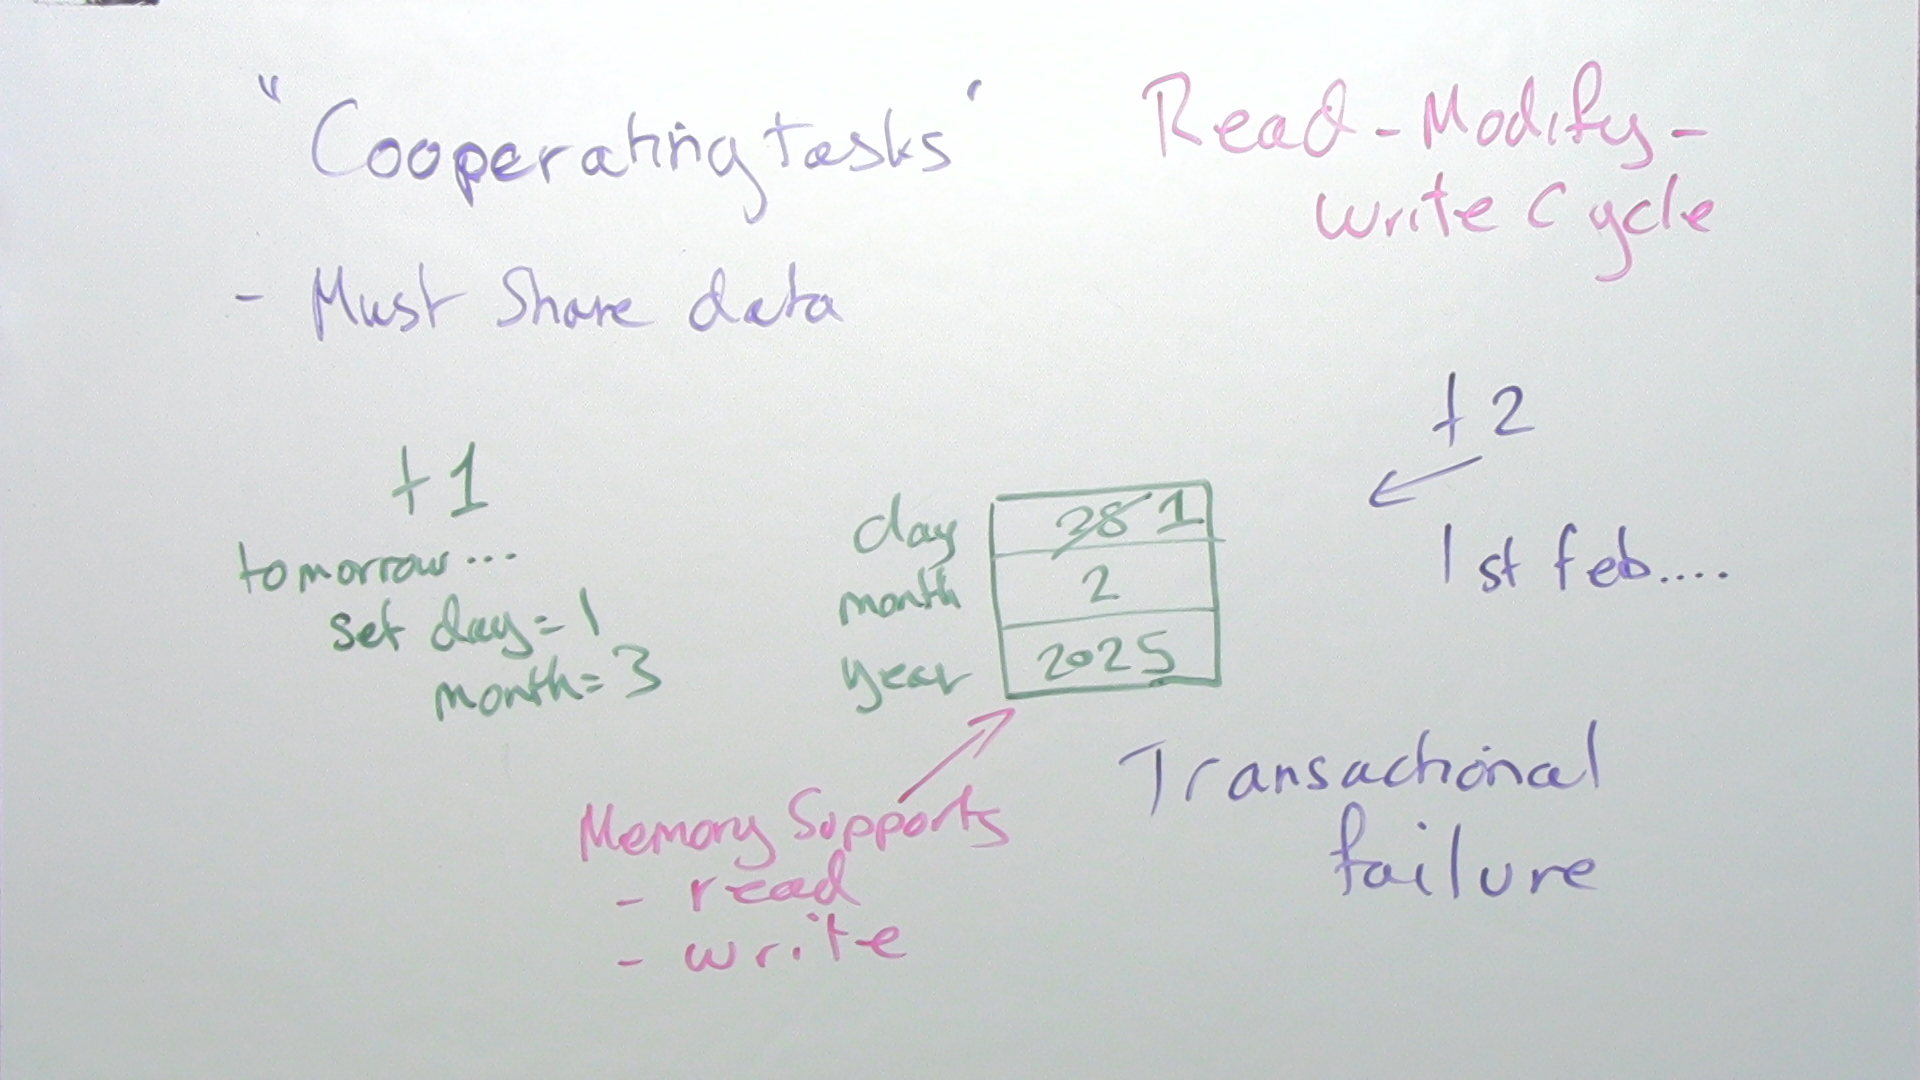 "Cooperating tasks"
- Must Share data
Read-Modify-
write Cycle
t1
tomorrow...
set day=1
month=3
day 28 1
month 2
year 2025
t2
1st feb....
Memory Supports
- read
- write
Transactional
failure